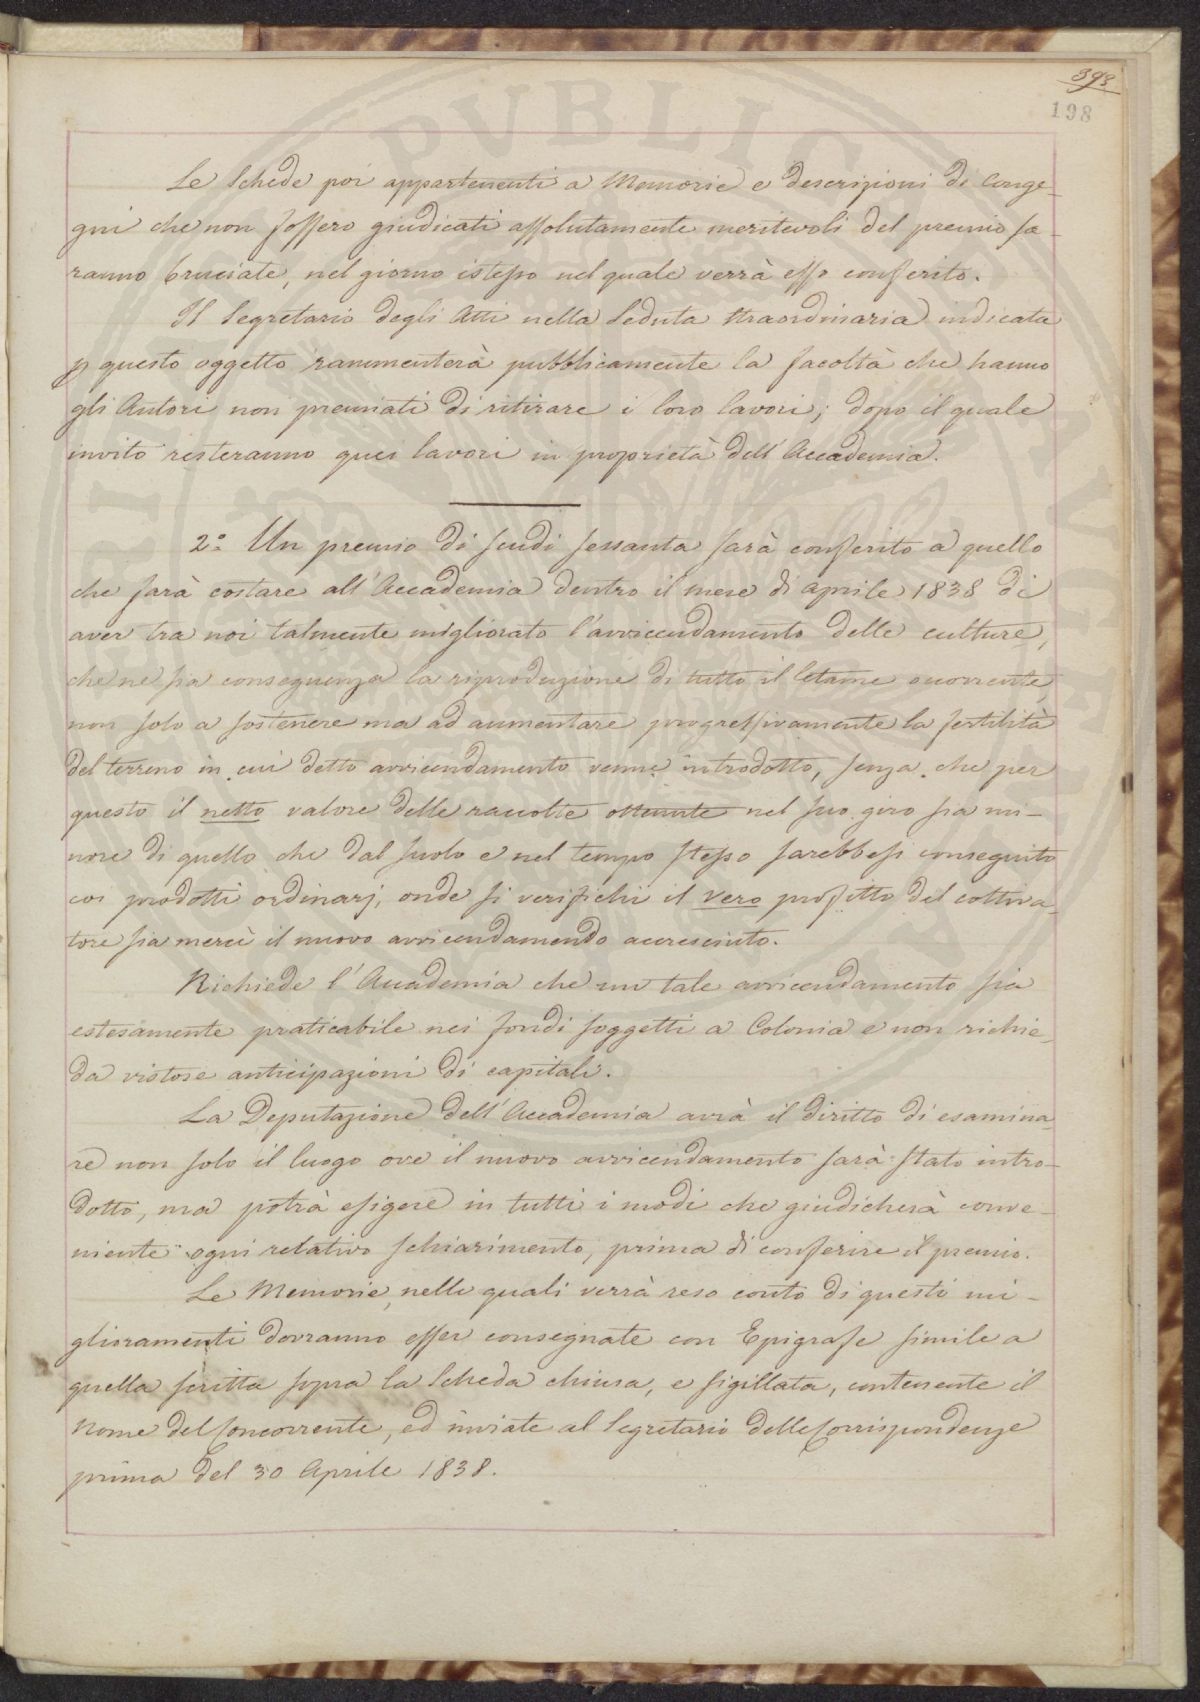 393
198
Le Schede poi appartenenti a Memorie e descrizioni di Conge-
gni che non fossero giudicati assolutamente meritevoli del premio sa-
ranno bruciate, nel giorno istesso nel quale verrà esso conferito.
Il Segretario degli Atti nella Seduta straordinaria indicata
p questo oggetto rammenterà pubblicamente la facoltà che hanno
gli Autori non premiati di ritirare i loro lavori; dopo il quale
invito resteranno quei lavori in proprietà dell'Accademia.
2.° Un premio di scudi sessanta sarà conferito a quello
che farà costare all'Accademia dentro il mese di aprile 1838 di
aver tra noi talmente migliorato l'avvicendamento delle culture,
che ne sia conseguenza la riproduzione di tutto il letame occorrente
non solo a sostenere ma ad aumentare progressivamente la fertilità
del terreno in cui detto avvicendamento venne introdotto, senza che per
questo il netto valore delle raccolte ottenute nel suo giro sia mi-
nore di quello che dal suolo e nel tempo stesso sarebbesi conseguito
coi prodotti ordinarj, onde si verifichi il vero profitto del coltiva-
tore sia mercè il nuovo avvicendamendo accresciuto.
Richiede l'Accademia che un tale avvicendamento sia
estesamente praticabile nei fondi soggetti a Colonia e non richie-
da vistose anticipazioni di capitali.
La Deputazione dell'Accademia avrà il diritto di esamina-
re non solo il luogo ove il nuovo avvicendamento sarà stato intro-
dotto, ma potrà esigere in tutti i modi che giudicherà conve-
niente ogni relativo schiarimento, prima di conferire il premio.
Le Memorie, nelle quali verrà reso conto di questi mi-
glioramenti dovranno esser consegnate con Epigrafe simile a
quella scritta sopra la Scheda chiusa, e sigillata, contenente il
nome del Concorrente, ed inviate al Segretario delle Corrispondenze
prima del 30 Aprile 1838.